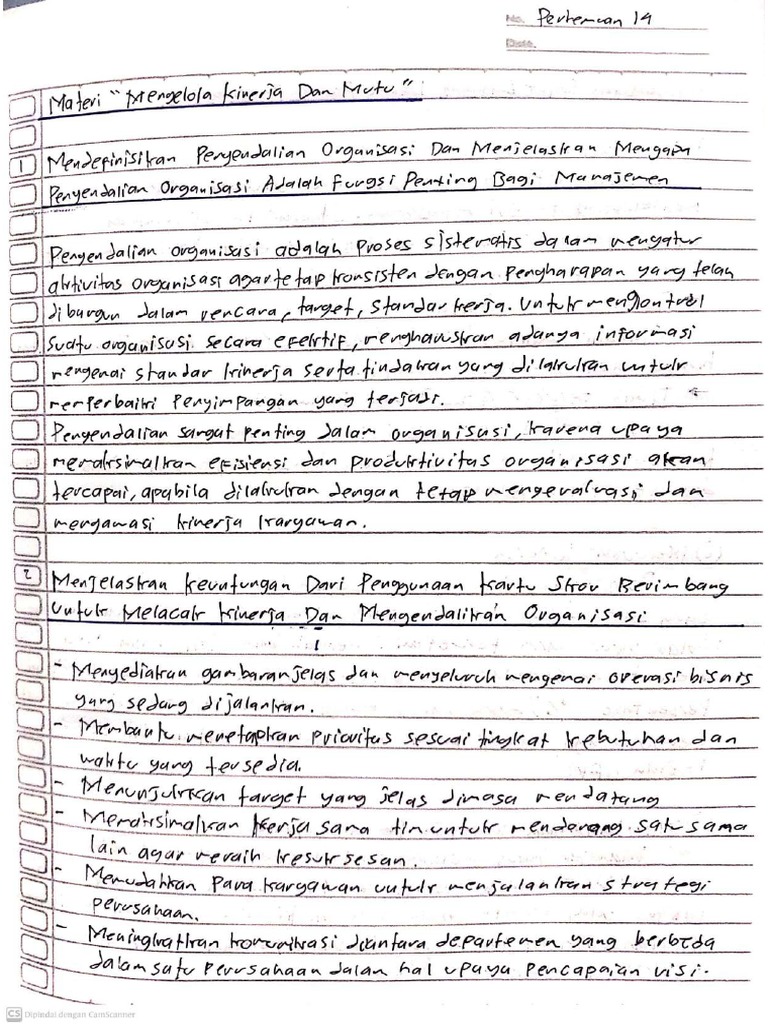 No. Pertemuan 14
Date.
Materi "Mengelola Kinerja Dan Mutu"
1 Mendefinisikan Pengendalian Organisasi Dan Menjelaskan Mengapa
Pengendalian Organisasi Adalah Fungsi Penting Bagi Manajemen
Pengendalian organisasi adalah proses sistematis dalam mengatur
aktivitas organisasi agar tetap konsisten dengan pengharapan yang telah
dibangun dalam rencana, target, standar kerja. Untuk mengontrol
suatu organisasi secara efektif, mengharuskan adanya informasi
mengenai standar kinerja serta tindakan yang dilakukan untuk
memperbaiki penyimpangan yang terjadi.
Pengendalian sangat penting dalam organisasi, karena upaya
memaksimalkan efisiensi dan produktivitas organisasi akan
tercapai, apabila dilakukan dengan tetap mengevaluasi dan
mengawasi kinerja karyawan.
2 Menjelaskan Keuntungan Dari Penggunaan Kartu Skor Berimbang
Untuk Melacak Kinerja Dan Mengendalikan Organisasi
- Menyediakan gambaran jelas dan menyeluruh mengenai operasi bisnis
yang sedang dijalankan.
- Membantu menetapkan prioritas sesuai tingkat kebutuhan dan
waktu yang tersedia.
- Menunjukkan target yang jelas dimasa mendatang
- Memaksimalkan kerja sama tim untuk mendorong satu sama
lain agar meraih kesuksesan.
- Memudahkan para karyawan untuk menjalankan strategi
perusahaan.
- Meningkatkan komunikasi diantara departemen yang berbeda
dalam satu perusahaan dalam hal upaya pencapaian visi.
CS Dipindai dengan CamScanner